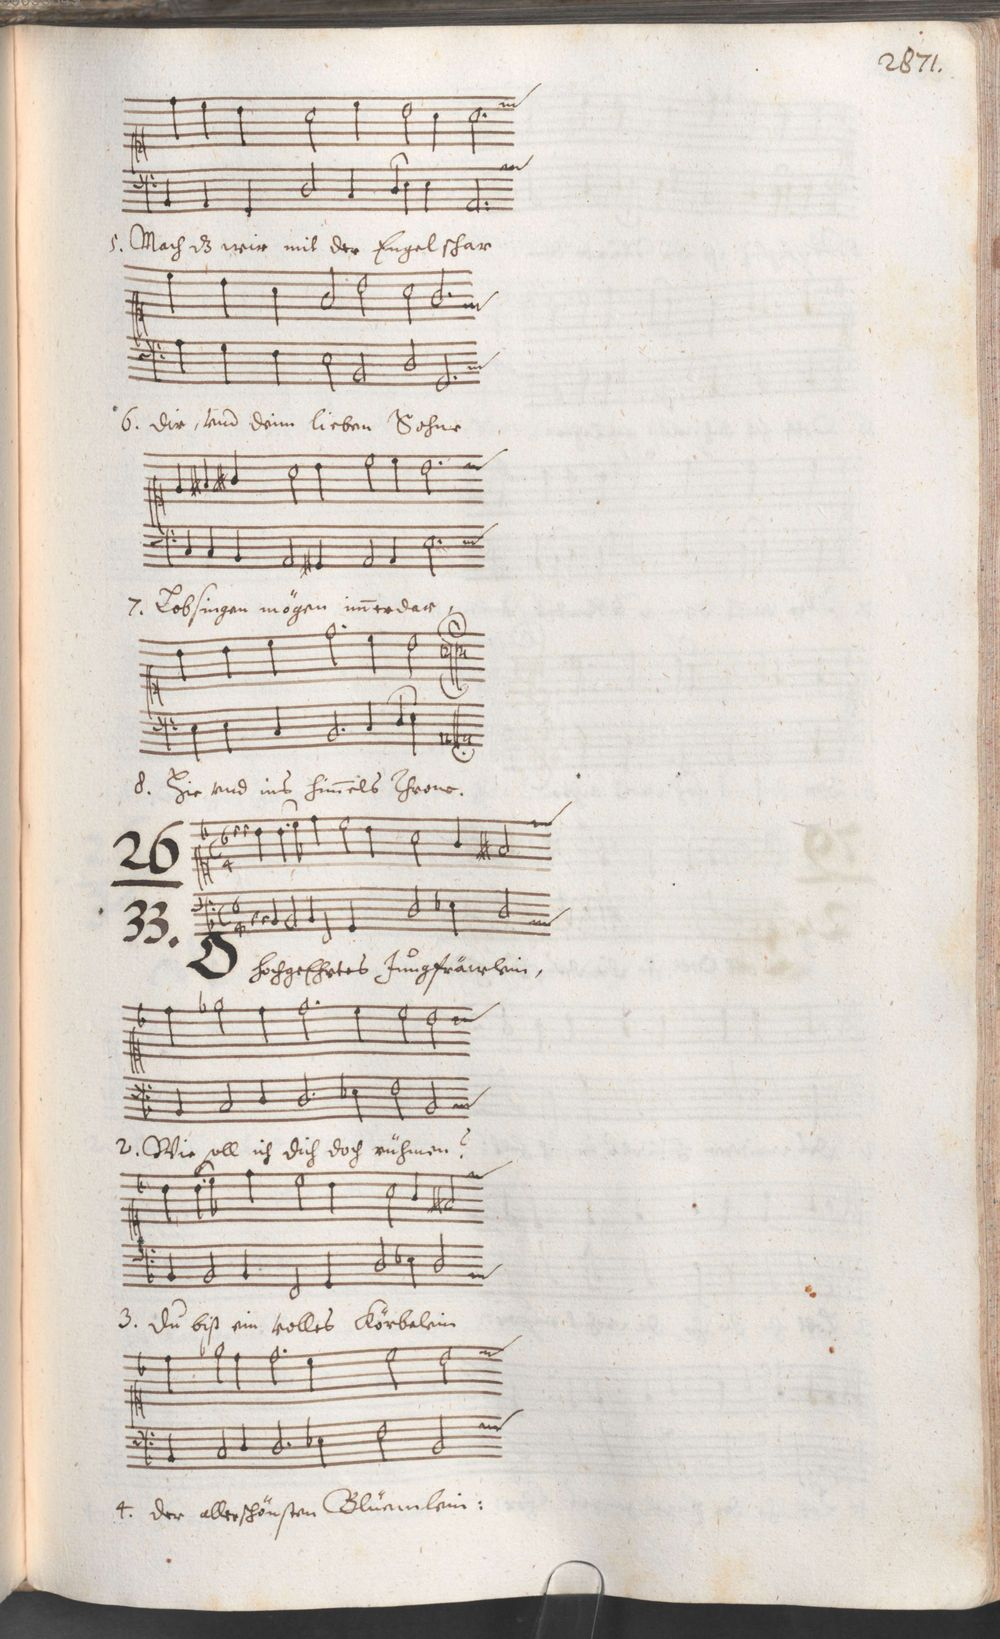 2871.
5. Mach dz wir mit der Engel schar
6. dir, vnd deim lieben Sohne
7. Lobsingen mögen im̄erdar,
8. Hie vnd ins him̄els Throne.
26
33.
O hochgeEhrtes Jungfräwlein,
2. Wie soll ich dich doch rühmen?
3. du bist ein volles Körbelein
4. der allerschönsten Blüemlein: